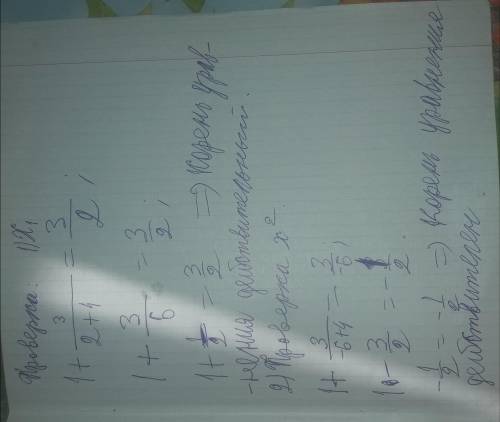 Проверка: 1) x₁
1 + 3/(2+4) = 3/2;
1 + 3/6 = 3/2;
1 + 1/2 = 3/2 => Корень урав-
нения действительный.
2) Проверка x²
1 + 3/(-6+4) = 3/-6;
1 - 3/2 = -1/2.
-1/2 = -1/2 => Корень уравнения
действителен